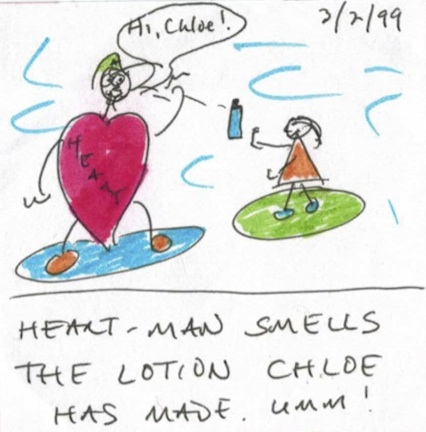 3/2/99
Hi, Chloe!
HEART
HEART-MAN SMELLS
THE LOTION CHLOE
HAS MADE. UMM!